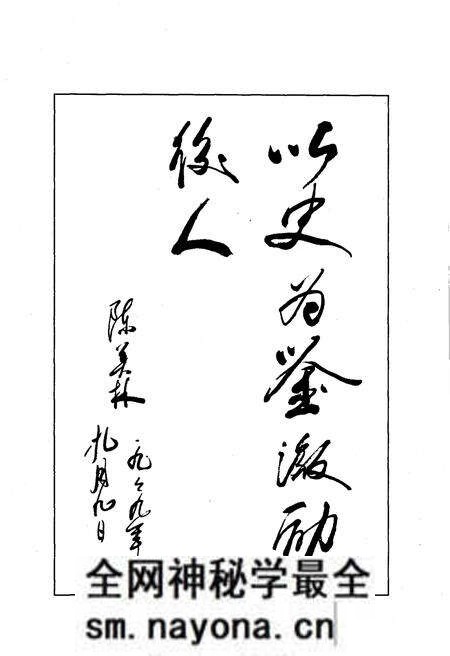 以史为鉴激励
後人
陈美林
一九九九年
九月九日
全网神秘学最全
sm.nayona.cn